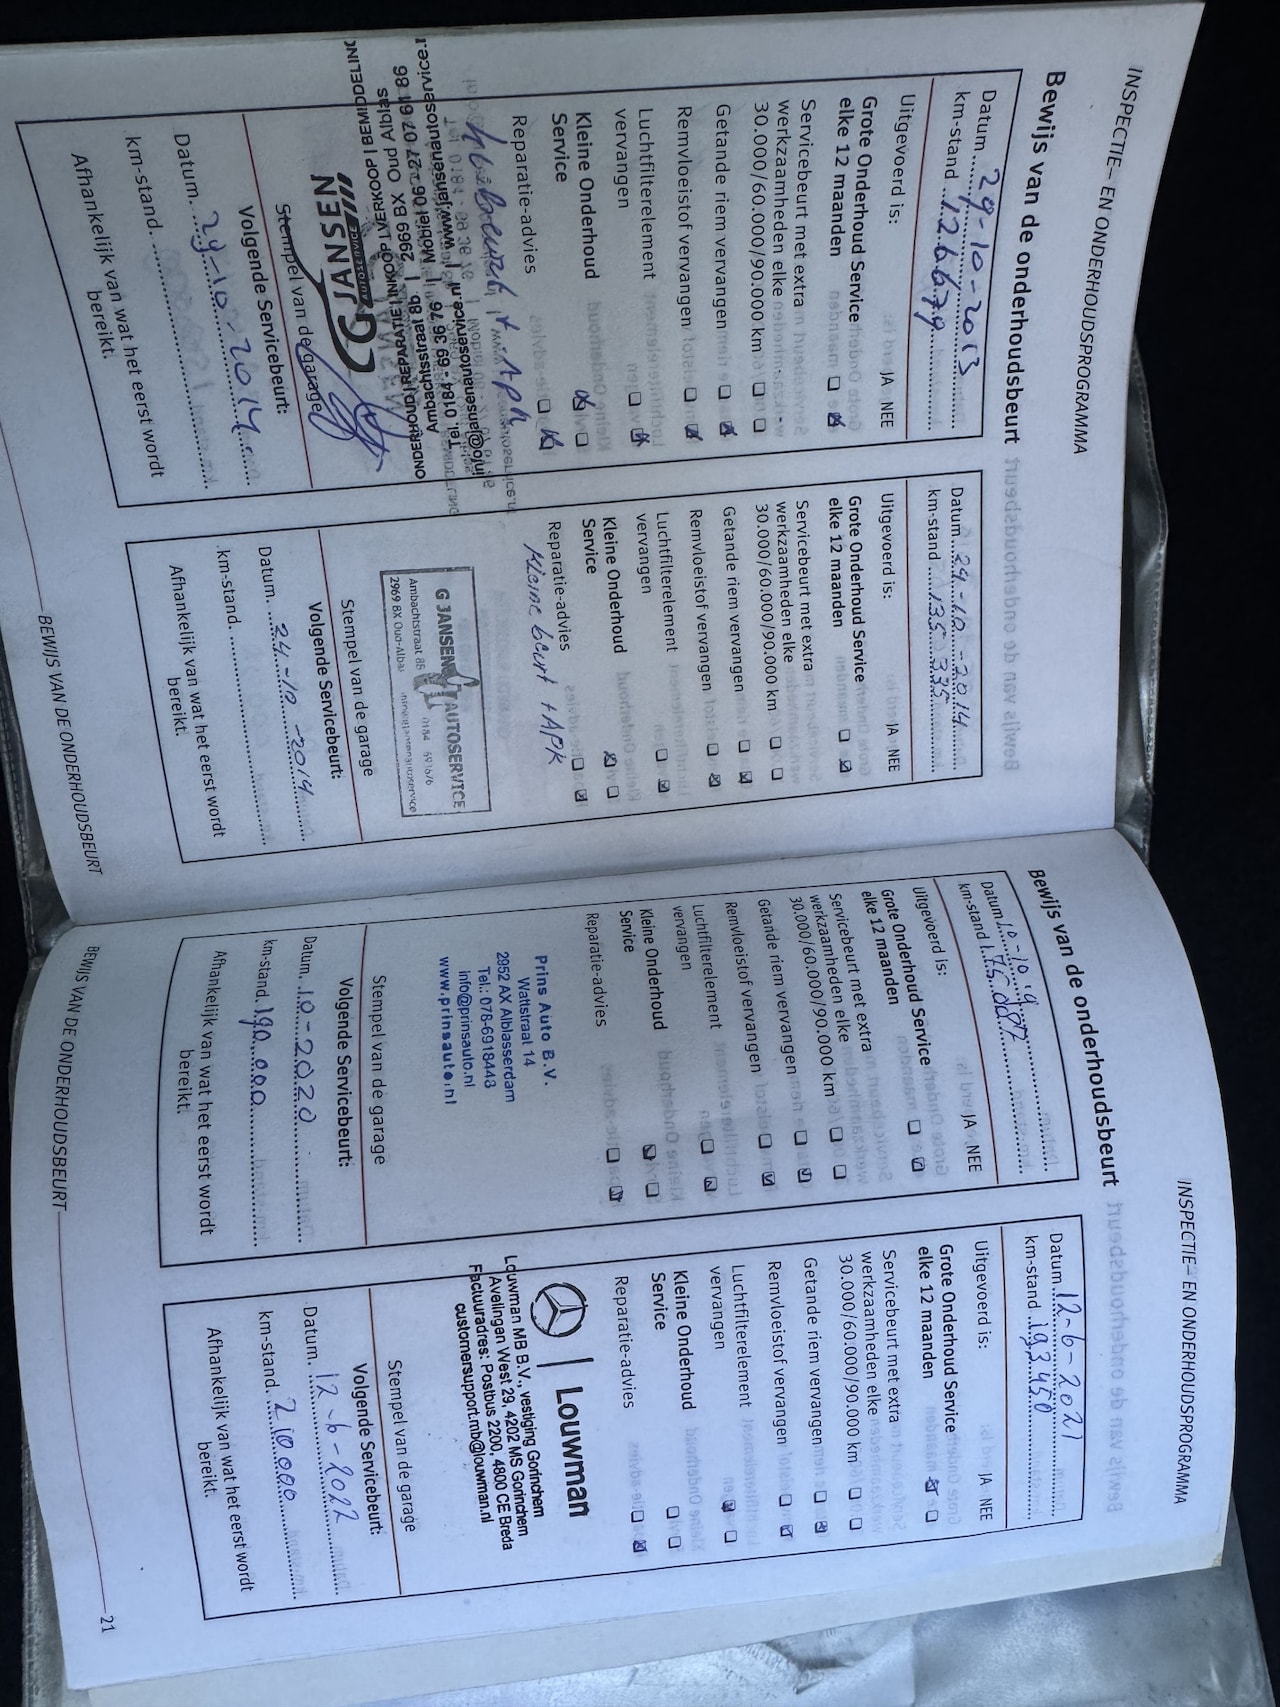 INSPECTIE- EN ONDERHOUDSPROGRAMMA
Bewijs van de onderhoudsbeurt
Datum 29-10-2013
km-stand 126679
Uitgevoerd is: JA NEE
Grote Onderhoud Service
elke 12 maanden
Servicebeurt met extra
werkzaamheden elke
30.000/60.000/90.000 km
Getande riem vervangen
Remvloeistof vervangen
Luchtfilterelement
vervangen
Kleine Onderhoud
Service
Reparatie-advies
+ APK
info@jansenautoservice.nl
Tel. 0184 - 69 36 76
Ambachtsstraat 8b
2969 BX Oud Alblas
JANSEN
Stempel van de garage
Volgende Servicebeurt:
Datum 29-10-2014
km-stand
Afhankelijk van wat het eerst wordt
bereikt.
Datum 24-10-2014
km-stand 135 335
Uitgevoerd is: JA NEE
Grote Onderhoud Service
elke 12 maanden
Servicebeurt met extra
werkzaamheden elke
30.000/60.000/90.000 km
Getande riem vervangen
Remvloeistof vervangen
Luchtfilterelement
vervangen
Kleine Onderhoud
Service
Reparatie-advies
Kleine beurt + APK
G JANSEN AUTOSERVICE
Ambachtstraat 8B 0184 693676
2969 BX Oud-Alblas
Stempel van de garage
Volgende Servicebeurt:
Datum 24-10-2014
km-stand
Afhankelijk van wat het eerst wordt
bereikt.
BEWIJS VAN DE ONDERHOUDSBEURT
INSPECTIE- EN ONDERHOUDSPROGRAMMA
Bewijs van de onderhoudsbeurt
Datum 10-10 '19
km-stand 175.087
Uitgevoerd is: JA NEE
Grote Onderhoud Service
elke 12 maanden
Servicebeurt met extra
werkzaamheden elke
30.000/60.000/90.000 km
Getande riem vervangen
Remvloeistof vervangen
Luchtfilterelement
vervangen
Kleine Onderhoud
Service
Reparatie-advies
Prins Auto B.V.
Wattstraat 14
2952 AX Alblasserdam
Tel: 078-6918443
info@prinsauto.nl
www.prinsauto.nl
Stempel van de garage
Volgende Servicebeurt:
Datum 10-2020
km-stand 190.000
Afhankelijk van wat het eerst wordt
bereikt.
Datum 12-6-2021
km-stand 193450
Uitgevoerd is: JA NEE
Grote Onderhoud Service
elke 12 maanden
Servicebeurt met extra
werkzaamheden elke
30.000/60.000/90.000 km
Getande riem vervangen
Remvloeistof vervangen
Luchtfilterelement
vervangen
Kleine Onderhoud
Service
Reparatie-advies
Louwman
Louwman MB B.V., vestiging Gorinchem
Avelingen West 29, 4202 MS Gorinchem
Factuuradres: Postbus 2200, 4800 CE Breda
customersupport.mb@louwman.nl
Stempel van de garage
Volgende Servicebeurt:
Datum 12-6-2022
km-stand 210000
Afhankelijk van wat het eerst wordt
bereikt.
BEWIJS VAN DE ONDERHOUDSBEURT 21